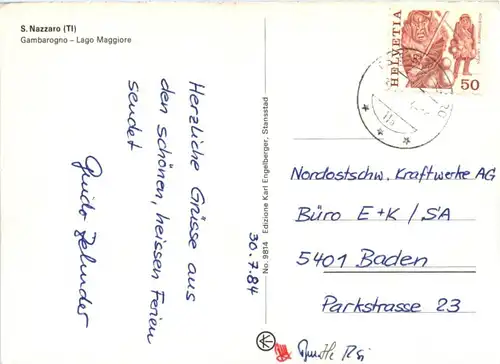 S. Nazzaro (TI)
Gambarogno – Lago Maggiore
Herzliche Grüsse aus
den schönen, heissen Ferien
sendet
Guido Zehnder
30.7.84
No. 9814 Edizione Karl Engelberger, Stansstad
HELVETIA
50
Nordostschw. Kraftwerke AG
Büro E+K / SA
5401 Baden
Parkstrasse 23